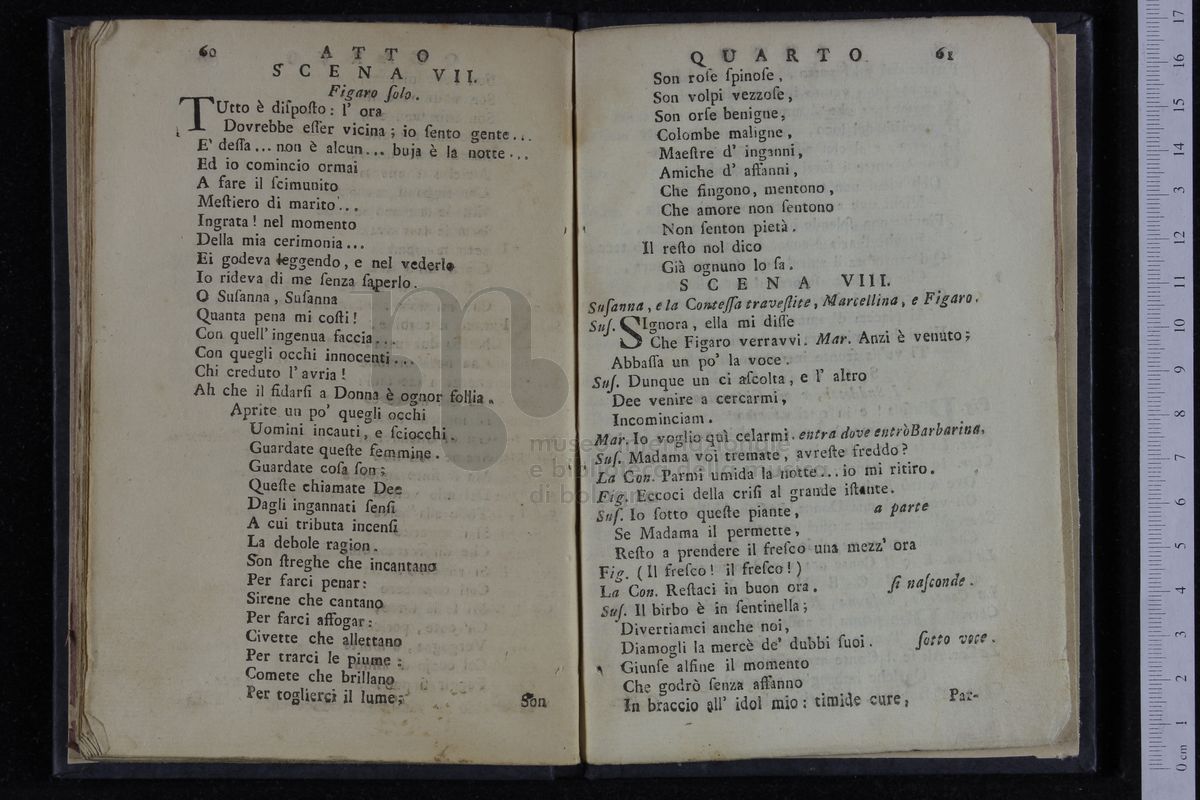 60 ATTO
SCENA VII.
Figaro ſolo.
TUtto è diſpoſto: l' ora
Dovrebbe eſſer vicina; io ſento gente...
E' deſſa... non è alcun... buja è la notte...
Ed io comincio ormai
A fare il ſcimunito
Meſtiero di marito...
Ingrata! nel momento
Della mia cerimonia...
Ei godeva leggendo, e nel vederlo
Io rideva di me ſenza ſaperlo.
O Suſanna, Suſanna
Quanta pena mi coſti!
Con quell' ingenua faccia...
Con quegli occhi innocenti...
Chi creduto l' avria!
Ah che il fidarſi a Donna è ognor follia.
Aprite un po' quegli occhi
Uomini incauti, e ſciocchi.
Guardate queſte femmine.
Guardate coſa ſon;
Queſte chiamate Dee
Dagli ingannati ſenſi
A cui tributa incenſi
La debole ragion.
Son ſtreghe che incantano
Per farci penar:
Sirene che cantano
Per farci affogar:
Civette che allettano
Per trarci le piume:
Comete che brillano
Per toglierci il lume;
Son
QUARTO. 61
Son roſe ſpinoſe,
Son volpi vezzoſe,
Son orſe benigne,
Colombe maligne,
Maeſtre d' inganni,
Amiche d' affanni,
Che fingono, mentono,
Che amore non ſentono
Non ſenton pietà.
Il reſto nol dico
Già ognuno lo ſa.
SCENA VIII.
Suſanna, e la Conteſſa traveſtite, Marcellina, e Figaro.
Suſ. SIgnora, ella mi diſſe
Che Figaro verravvi. Mar. Anzi è venuto;
Abbaſſa un po' la voce.
Suſ. Dunque un ci aſcolta, e l' altro
Dee venire a cercarmi,
Incominciam.
Mar. Io voglio quì celarmi. entra dove entrò Barbarina.
Suſ. Madama voi tremate, avreſte freddo?
La Con. Parmi umida la notte... io mi ritiro.
Fig. Eccoci della criſi al grande iſtante.
Suſ. Io ſotto queſte piante, a parte
Se Madama il permette,
Reſto a prendere il freſco una mezz' ora
Fig. (Il freſco! il freſco!)
La Con. Reſtaci in buon ora. ſi naſconde.
Suſ. Il birbo è in ſentinella;
Divertiamci anche noi,
Diamogli la mercè de' dubbi ſuoi. ſotto voce.
Giunſe alfine il momento
Che godrò ſenza affanno
In braccio all' idol mio: timide cure,
Par-
museo internazionale
e biblioteca della musica
di bologna
0 cm 1 2 3 4 5 6 7 8 9 10 11 12 13 14 15 16 17